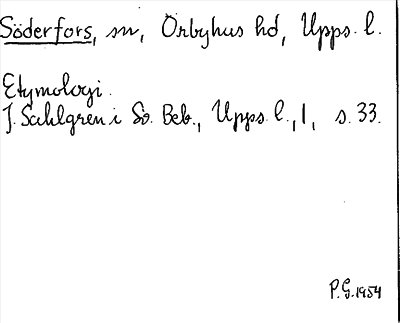 Söderfors, sn, Örbyhus hd, Upps. l.
Etymologi.
J. Sahlgren i Sv. Beb., Upps. l., 1, s. 33.
P.G. 1954